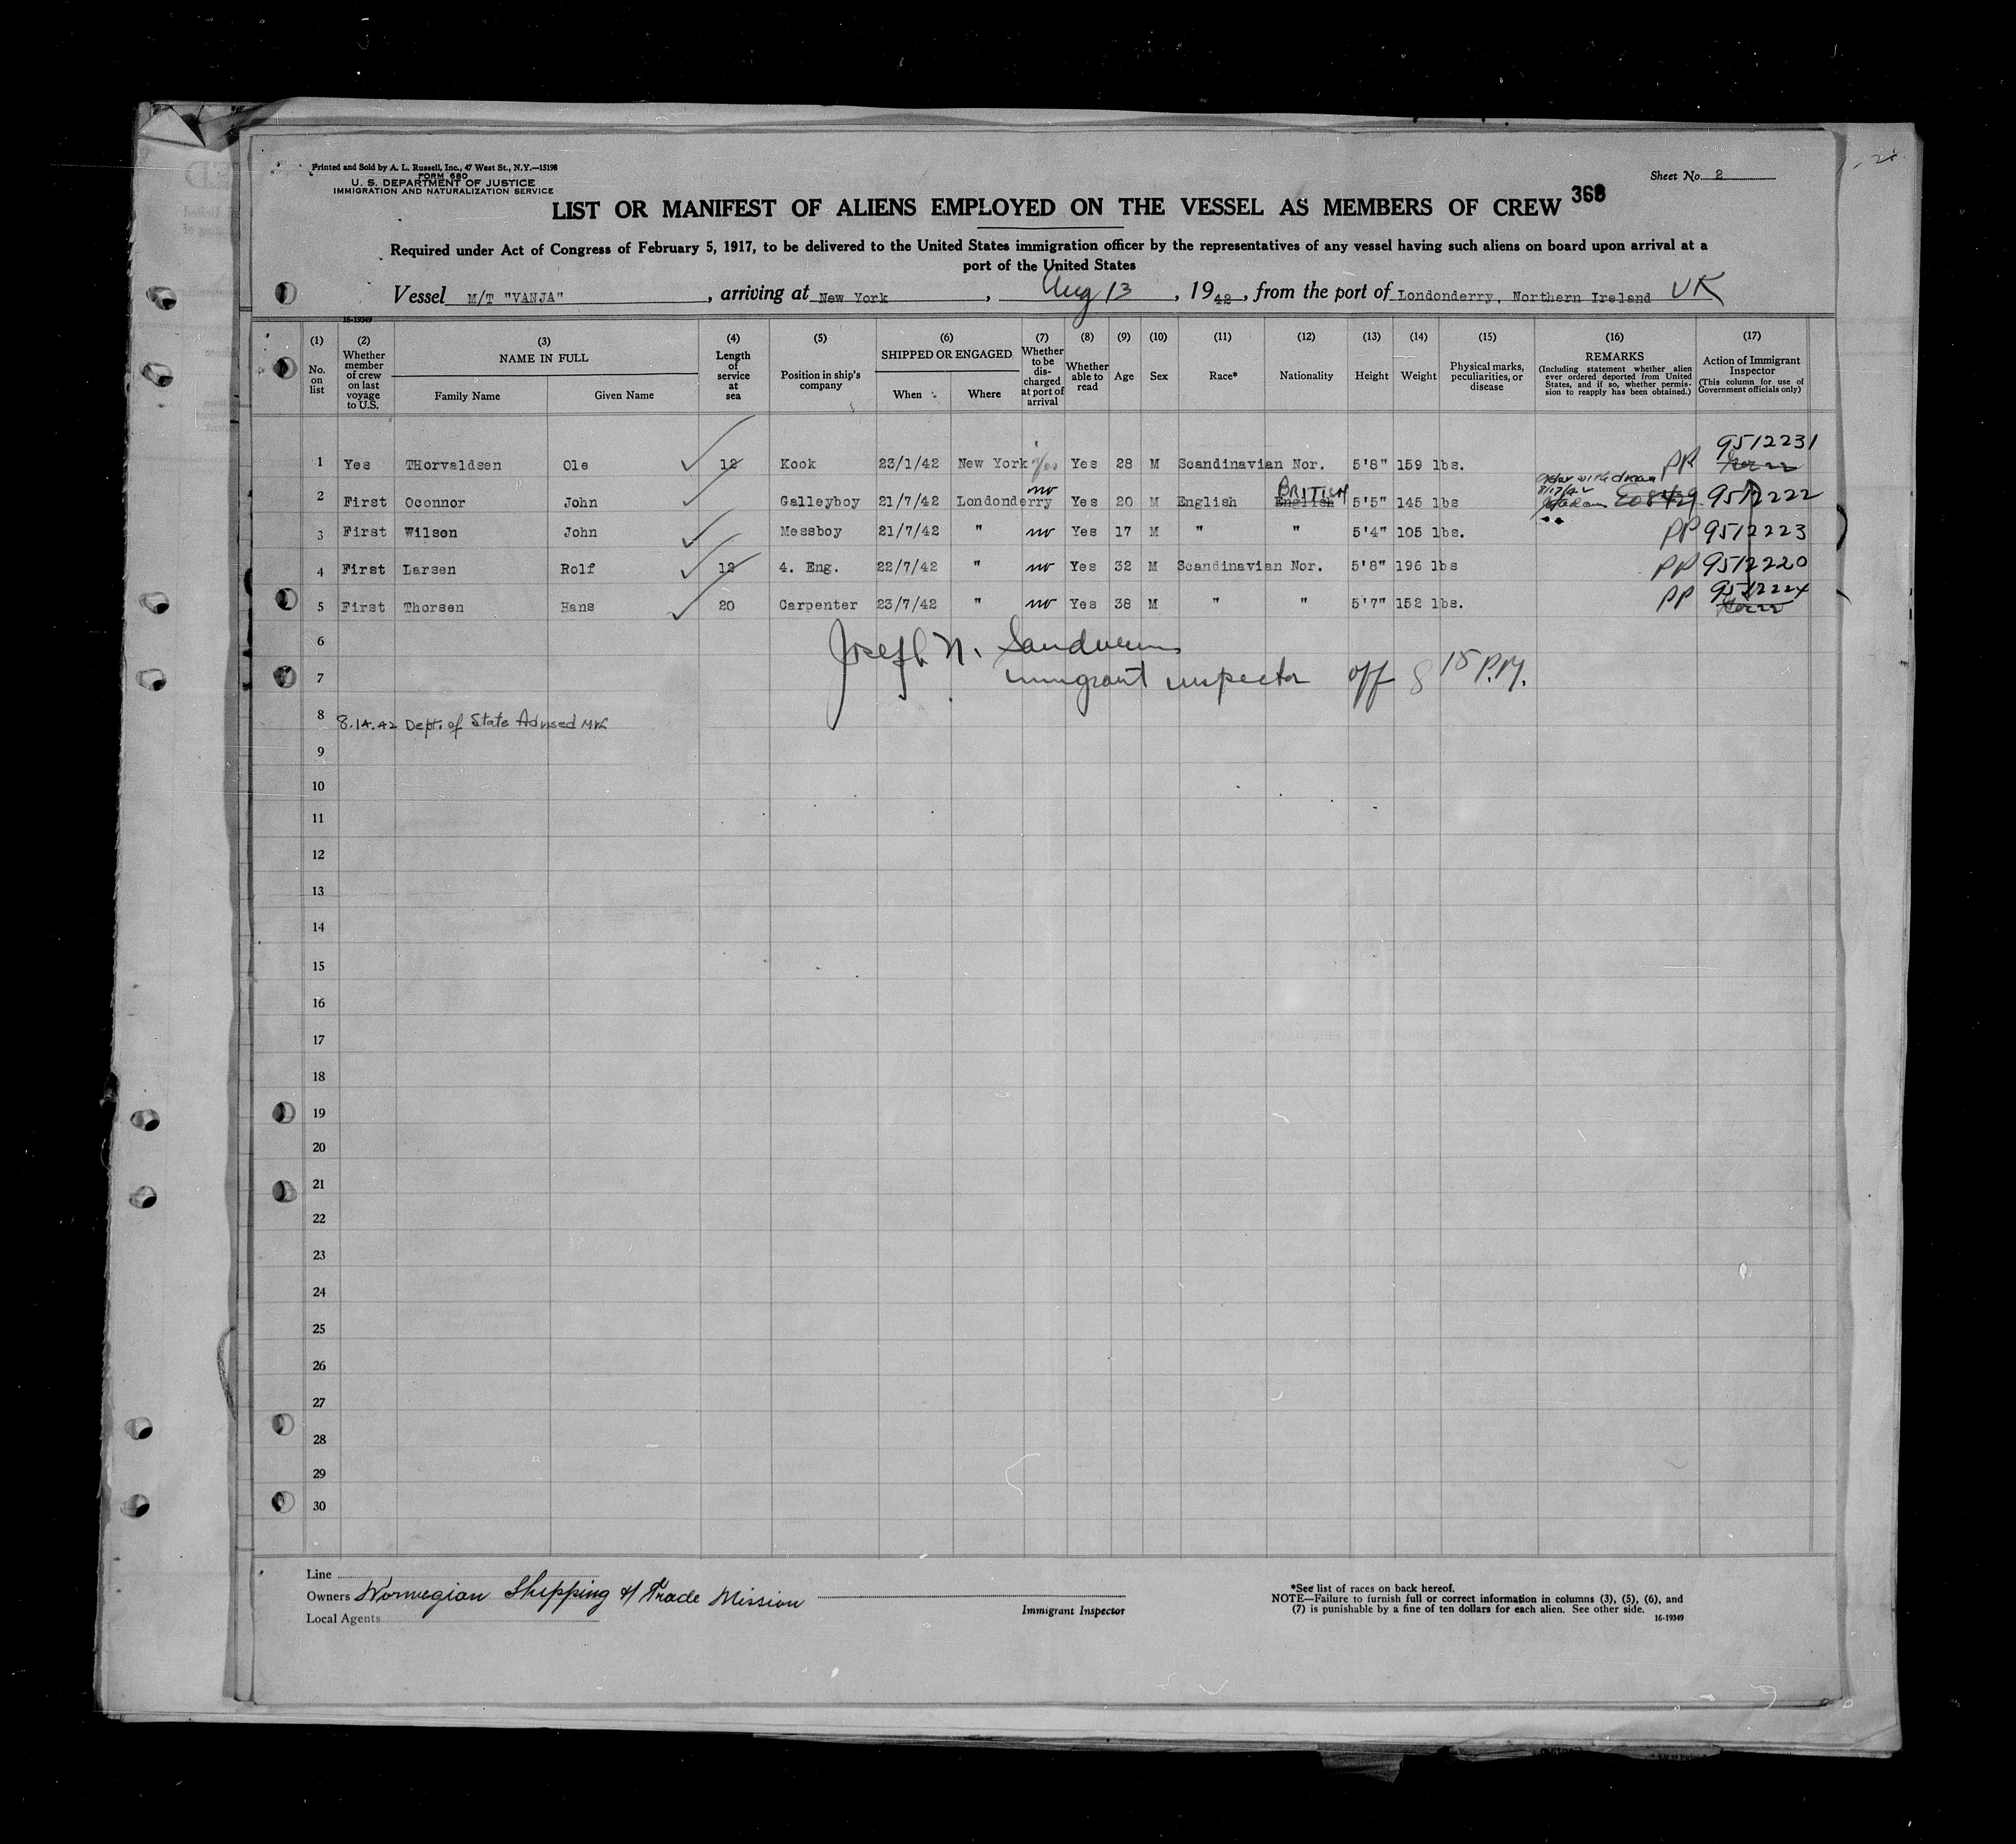 Printed and Sold by A. L. Russell, Inc., 47 West St., N.Y.—15198
FORM 680
U. S. DEPARTMENT OF JUSTICE
IMMIGRATION AND NATURALIZATION SERVICE
Sheet No. 2
LIST OR MANIFEST OF ALIENS EMPLOYED ON THE VESSEL AS MEMBERS OF CREW 368
Required under Act of Congress of February 5, 1917, to be delivered to the United States immigration officer by the representatives of any vessel having such aliens on board upon arrival at a
port of the United States
Vessel M/T "VANJA", arriving at New York, Aug 13, 1942, from the port of Londonderry, Northern Ireland UK
16-19349
(1) No. on list
(2) Whether member of crew on last voyage to U.S.
(3) NAME IN FULL
Family Name
Given Name
(4) Length of service at sea
(5) Position in ship's company
(6) SHIPPED OR ENGAGED
When
Where
(7) Whether to be discharged at port of arrival
(8) Whether able to read
(9) Age
(10) Sex
(11) Race*
(12) Nationality
(13) Height
(14) Weight
(15) Physical marks, peculiarities, or disease
(16) REMARKS
(Including statement whether alien ever ordered deported from United States, and if so, whether permission to reapply has been obtained.)
(17) Action of Immigrant Inspector
(This column for use of Government officials only)
1 Yes THorvaldsen Ole 12 Kook 23/1/42 New York Yes Yes 28 M Scandinavian Nor. 5'8" 159 lbs. PP 9512231
2 First Oconnor John Galleyboy 21/7/42 Londonderry no Yes 20 M English English BRITISH 5'5" 145 lbs 8/17/42 9512222
3 First Wilson John Messboy 21/7/42 " no Yes 17 M " " 5'4" 105 lbs. PP 9512223
4 First Larsen Rolf 12 4. Eng. 22/7/42 " no Yes 32 M Scandinavian Nor. 5'8" 196 lbs PP 9512220
5 First Thorsen Hans 20 Carpenter 23/7/42 " no Yes 38 M " " 5'7" 152 lbs. PP 9512224
6
Joseph N.
7
immigrant inspector off 8 15 P.M.
8
8.14.42 Dept. of State Advised
9
10
11
12
13
14
15
16
17
18
19
20
21
22
23
24
25
26
27
28
29
30
Line
Owners Norwegian Shipping & Trade Mission
Local Agents
Immigrant Inspector
*See list of races on back hereof.
NOTE—Failure to furnish full or correct information in columns (3), (5), (6), and
(7) is punishable by a fine of ten dollars for each alien. See other side.
16-19349